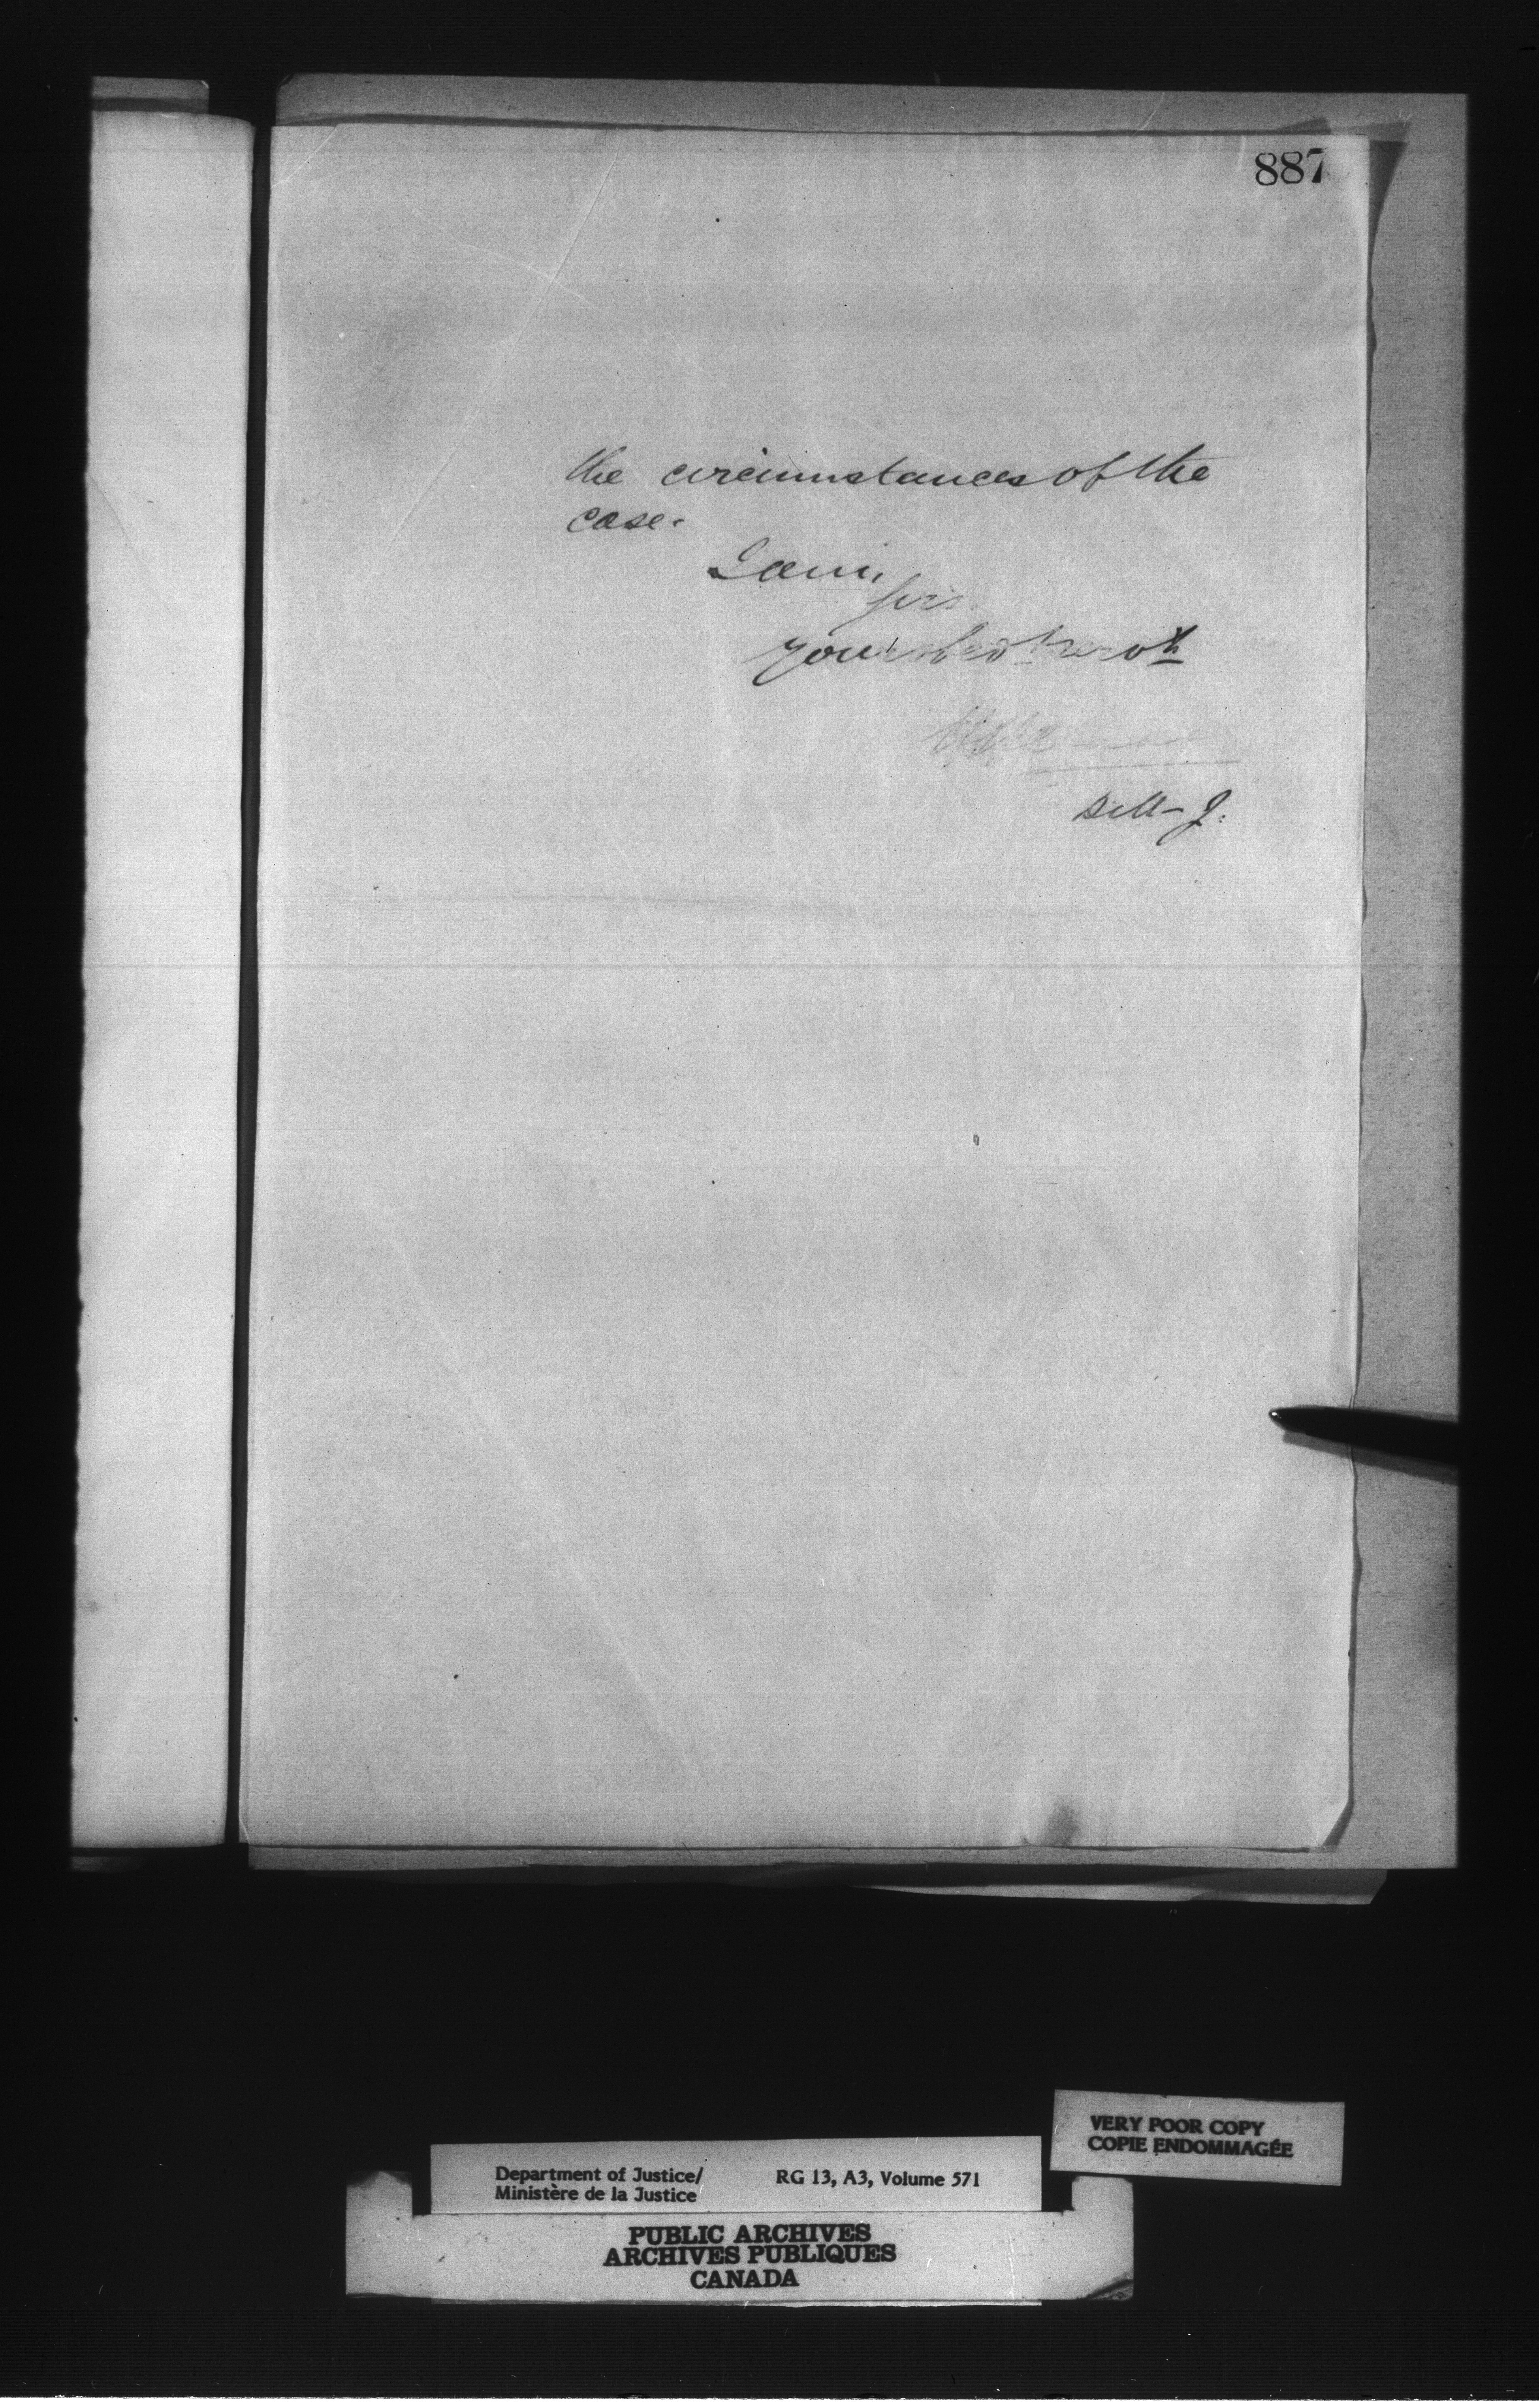 887
the circumstances of the
case.
I am,
Sir,
Your obdt servt
D M J.
VERY POOR COPY
COPIE ENDOMMAGÉE
Department of Justice/ RG 13, A3, Volume 571
Ministère de la Justice
PUBLIC ARCHIVES
ARCHIVES PUBLIQUES
CANADA